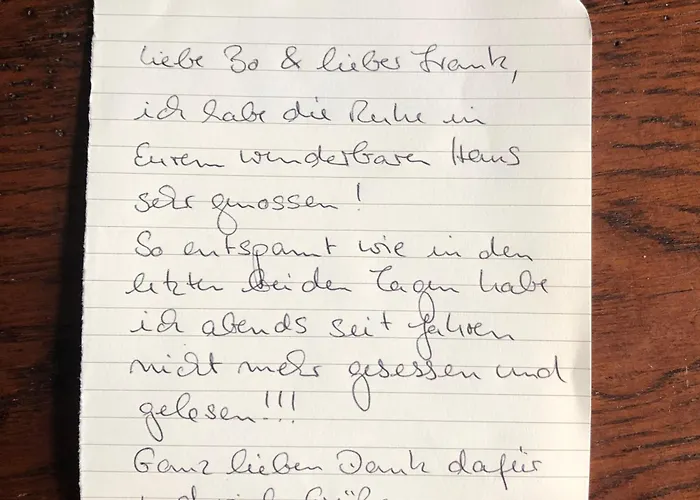 liebe Bo & lieber Frank,
ich habe die Ruhe in
Eurem wunderbaren Haus
sehr genossen!
So entspannt wie in den
letzten beiden Tagen habe
ich abends seit Jahren
nicht mehr gesessen und
gelesen!!!
Ganz lieben Dank dafür